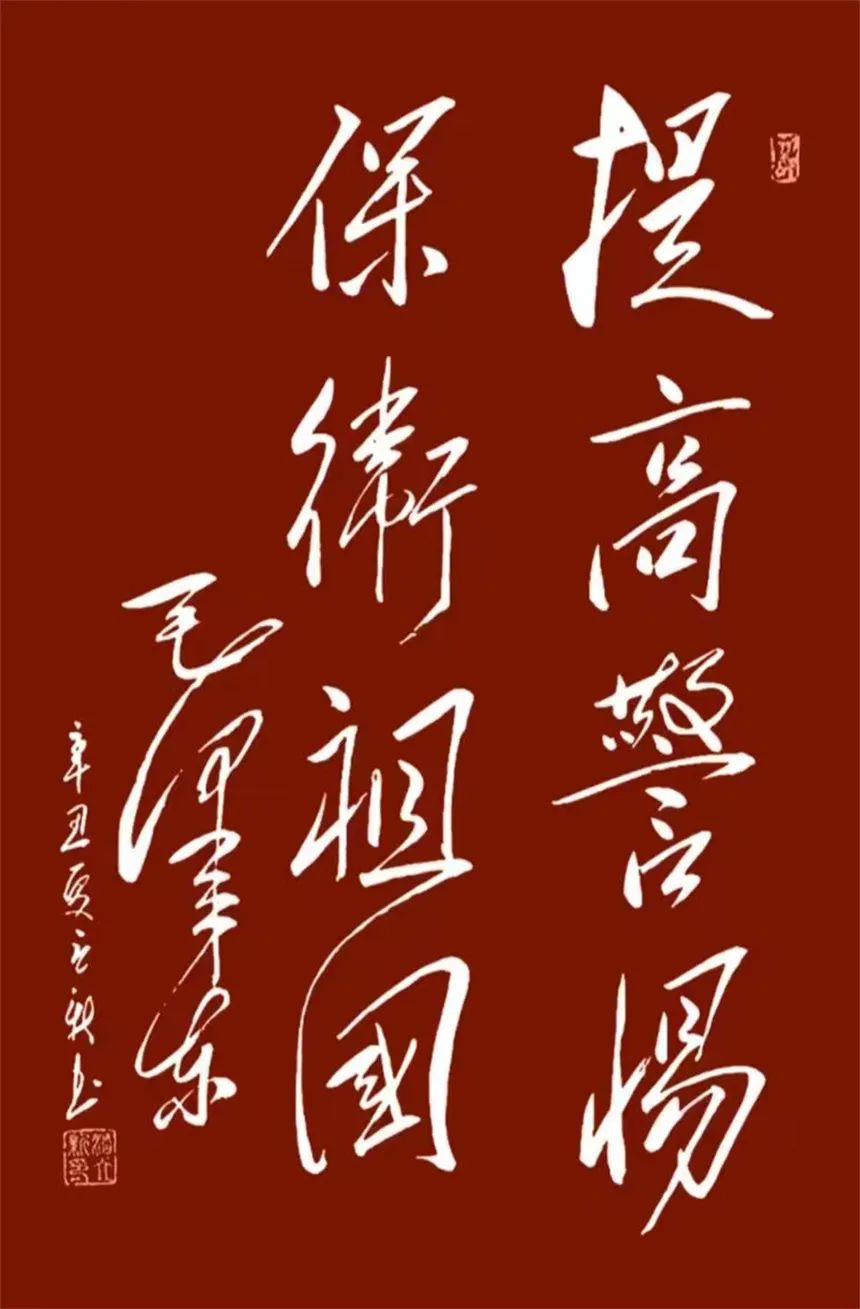 提高警惕
保衛祖國
毛澤東
辛丑夏立新書